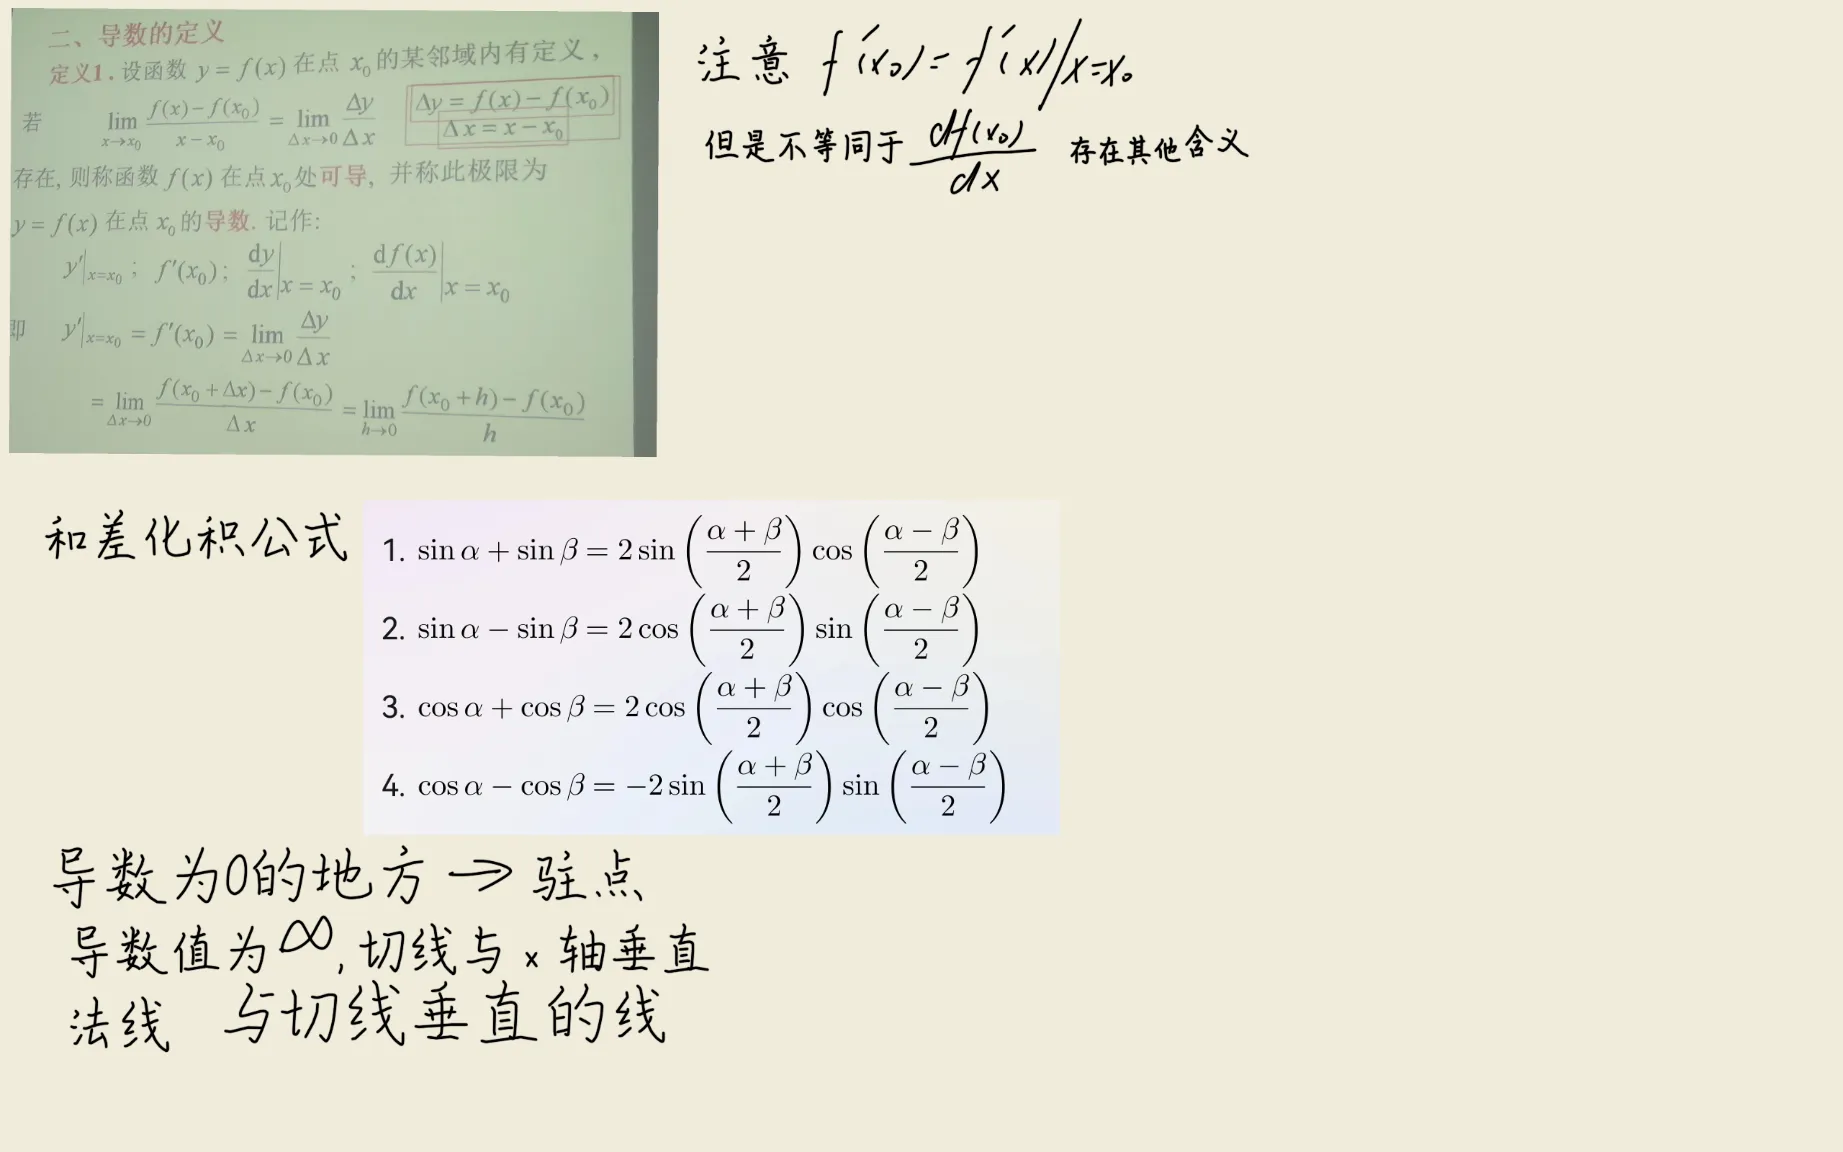 二、导数的定义
定义1. 设函数 y = f(x) 在点 x₀ 的某邻域内有定义，
若 lim_{x→x₀} (f(x) − f(x₀))/(x − x₀) = lim_{Δx→0} Δy/Δx
Δy = f(x) − f(x₀)
Δx = x − x₀
存在, 则称函数 f(x) 在点 x₀ 处可导, 并称此极限为
y = f(x) 在点 x₀ 的导数. 记作:
y′|_{x=x₀} ; f′(x₀) ; dy/dx|_{x = x₀} ; df(x)/dx|_{x = x₀}
即 y′|_{x=x₀} = f′(x₀) = lim_{Δx→0} Δy/Δx
= lim_{Δx→0} (f(x₀ + Δx) − f(x₀))/Δx = lim_{h→0} (f(x₀ + h) − f(x₀))/h
注意 f′(x₀) = f′(x)|x=x₀
但是不等同于 df(x₀)/dx 存在其他含义
和差化积公式
1. sin α + sin β = 2 sin((α + β)/2) cos((α − β)/2)
2. sin α − sin β = 2 cos((α + β)/2) sin((α − β)/2)
3. cos α + cos β = 2 cos((α + β)/2) cos((α − β)/2)
4. cos α − cos β = −2 sin((α + β)/2) sin((α − β)/2)
导数为0的地方 → 驻点
导数值为∞, 切线与 x 轴垂直
法线 与切线垂直的线